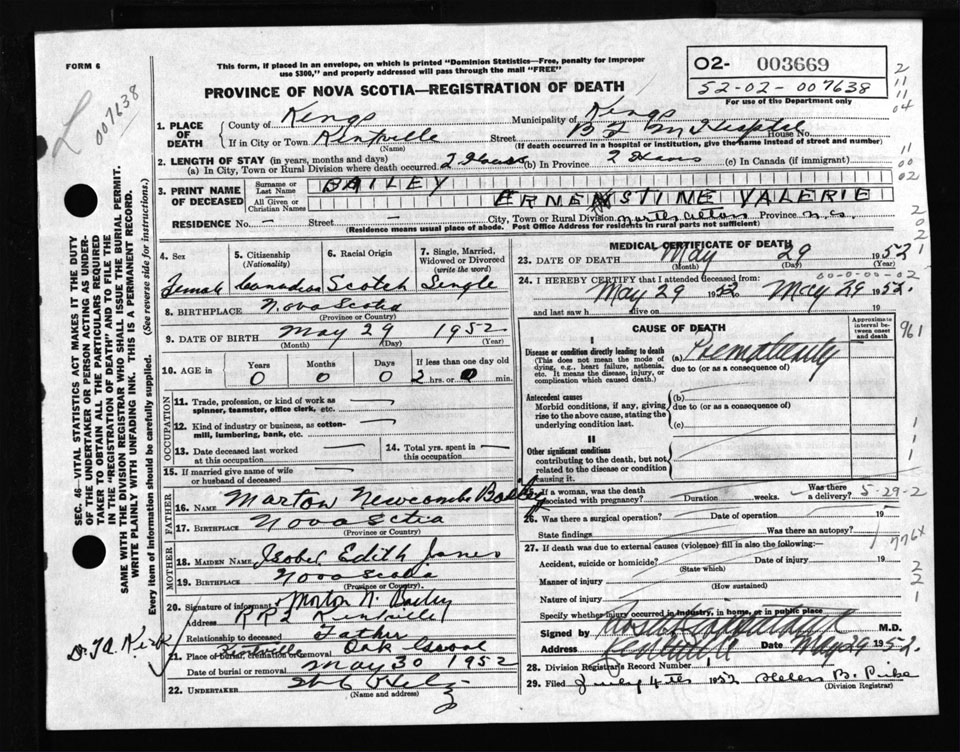 FORM 6
This form, if placed in an envelope, on which is printed "Dominion Statistics—Free, penalty for improper
use $300," and properly addressed will pass through the mail "FREE"
PROVINCE OF NOVA SCOTIA—REGISTRATION OF DEATH
O2- 003669
52-02-007638
For use of the Department only
007638
1. PLACE OF DEATH
County of Kings Municipality of Kings
If in City or Town Kentville Street B F M Hospital House No.
(Name) (If death occurred in a hospital or institution, give the name instead of street and number)
2. LENGTH OF STAY (in years, months and days)
(a) In City, Town or Rural Division where death occurred 2 Hours (b) In Province 2 Hours (c) In Canada (if immigrant)
3. PRINT NAME OF DECEASED
Surname or Last Name BAILEY
All Given or Christian Names ERNESTINE VALERIE
RESIDENCE No. — Street — City, Town or Rural Division North Alton Province N.S.
(Residence means usual place of abode. Post Office Address for residents in rural parts not sufficient)
4. Sex Female
5. Citizenship (Nationality) Canadian
6. Racial Origin Scotch
7. Single, Married, Widowed or Divorced (write the word) Single
8. BIRTHPLACE Nova Scotia
(Province or Country)
9. DATE OF BIRTH May 29 1952
(Month) (Day) (Year)
10. AGE in Years 0 Months 0 Days 0 If less than one day old 2 hrs. or 0 min.
OCCUPATION
11. Trade, profession, or kind of work as spinner, teamster, office clerk, etc. —
12. Kind of industry or business, as cotton-mill, lumbering, bank, etc. —
13. Date deceased last worked at this occupation —
14. Total yrs. spent in this occupation —
15. If married give name of wife or husband of deceased —
FATHER
16. Name Morton Newcombe Bailey
17. BIRTHPLACE Nova Scotia
(Province or Country)
MOTHER
18. MAIDEN NAME Isobel Edith Jones
19. BIRTHPLACE Nova Scotia
(Province or Country)
20. Signature of informant Morton N. Bailey
Address RR2 Kentville
Relationship to deceased Father
21. Place of burial, cremation or removal Kentville Oak Grove
Date of burial or removal May 30 1952
22. UNDERTAKER
(Name and address)
MEDICAL CERTIFICATE OF DEATH
23. DATE OF DEATH May 29 1952
(Month) (Day) (Year)
24. I HEREBY CERTIFY that I attended deceased from:
May 29 1952 to May 29 1952.
and last saw h alive on 19
CAUSE OF DEATH
Approximate interval between onset and death
I
Disease or condition directly leading to death
(This does not mean the mode of dying, e.g., heart failure, asthenia, etc. It means the disease, injury, or complication which caused death.)
(a) Prematurity
due to (or as a consequence of)
Antecedent causes
Morbid conditions, if any, giving rise to the above cause, stating the underlying condition last.
(b)
due to (or as a consequence of)
(c)
II
Other significant conditions
contributing to the death, but not related to the disease or condition causing it.
25. If a woman, was the death associated with pregnancy? Duration weeks. Was there a delivery?
5-29-2
26. Was there a surgical operation? Date of operation 19
State findings Was there an autopsy?
776X
27. If death was due to external causes (violence) fill in also the following:—
Accident, suicide or homicide? Date of injury 19
(State which)
Manner of injury
(How sustained)
Nature of injury
Specify whether injury occurred in industry, in home, or in public place
Signed by M.D.
Kentville Date May 29 1952.
28. Division Registrar's Record Number 1
29. Filed July 4th 1952 Helen B.
(Division Registrar)
SEC. 46—VITAL STATISTICS ACT MAKES IT THE DUTY
OF THE UNDERTAKER OR PERSON ACTING AS UNDER-
TAKER TO OBTAIN ALL THE PARTICULARS REQUIRED
IN THE "REGISTRATION OF DEATH" AND TO FILE THE
SAME WITH THE DIVISION REGISTRAR WHO SHALL ISSUE THE BURIAL PERMIT.
WRITE PLAINLY WITH UNFADING INK. THIS IS A PERMANENT RECORD.
Every item of information should be carefully supplied. (See reverse side for instructions.)